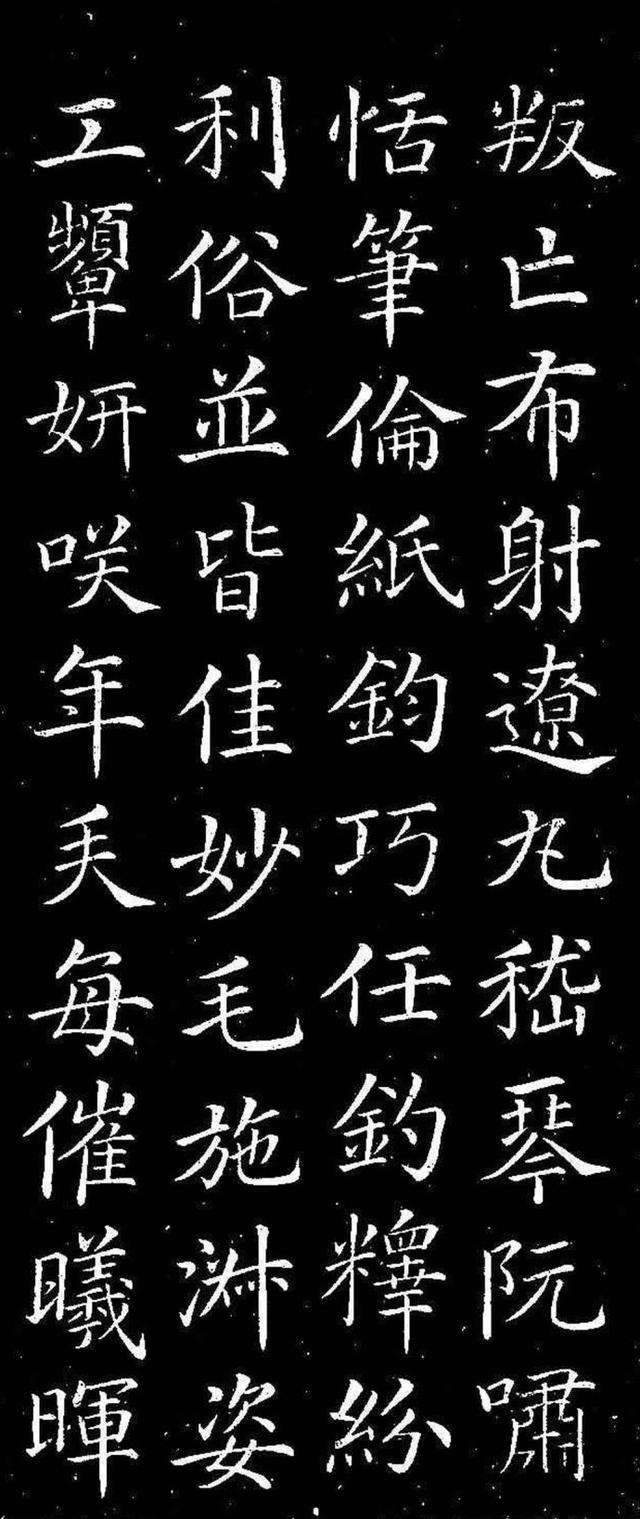 叛亡布射遼丸嵇琴阮嘯
恬筆倫紙鈞巧任釣釋紛
利俗並皆佳妙毛施淑姿
工顰妍咲年矢每催曦暉